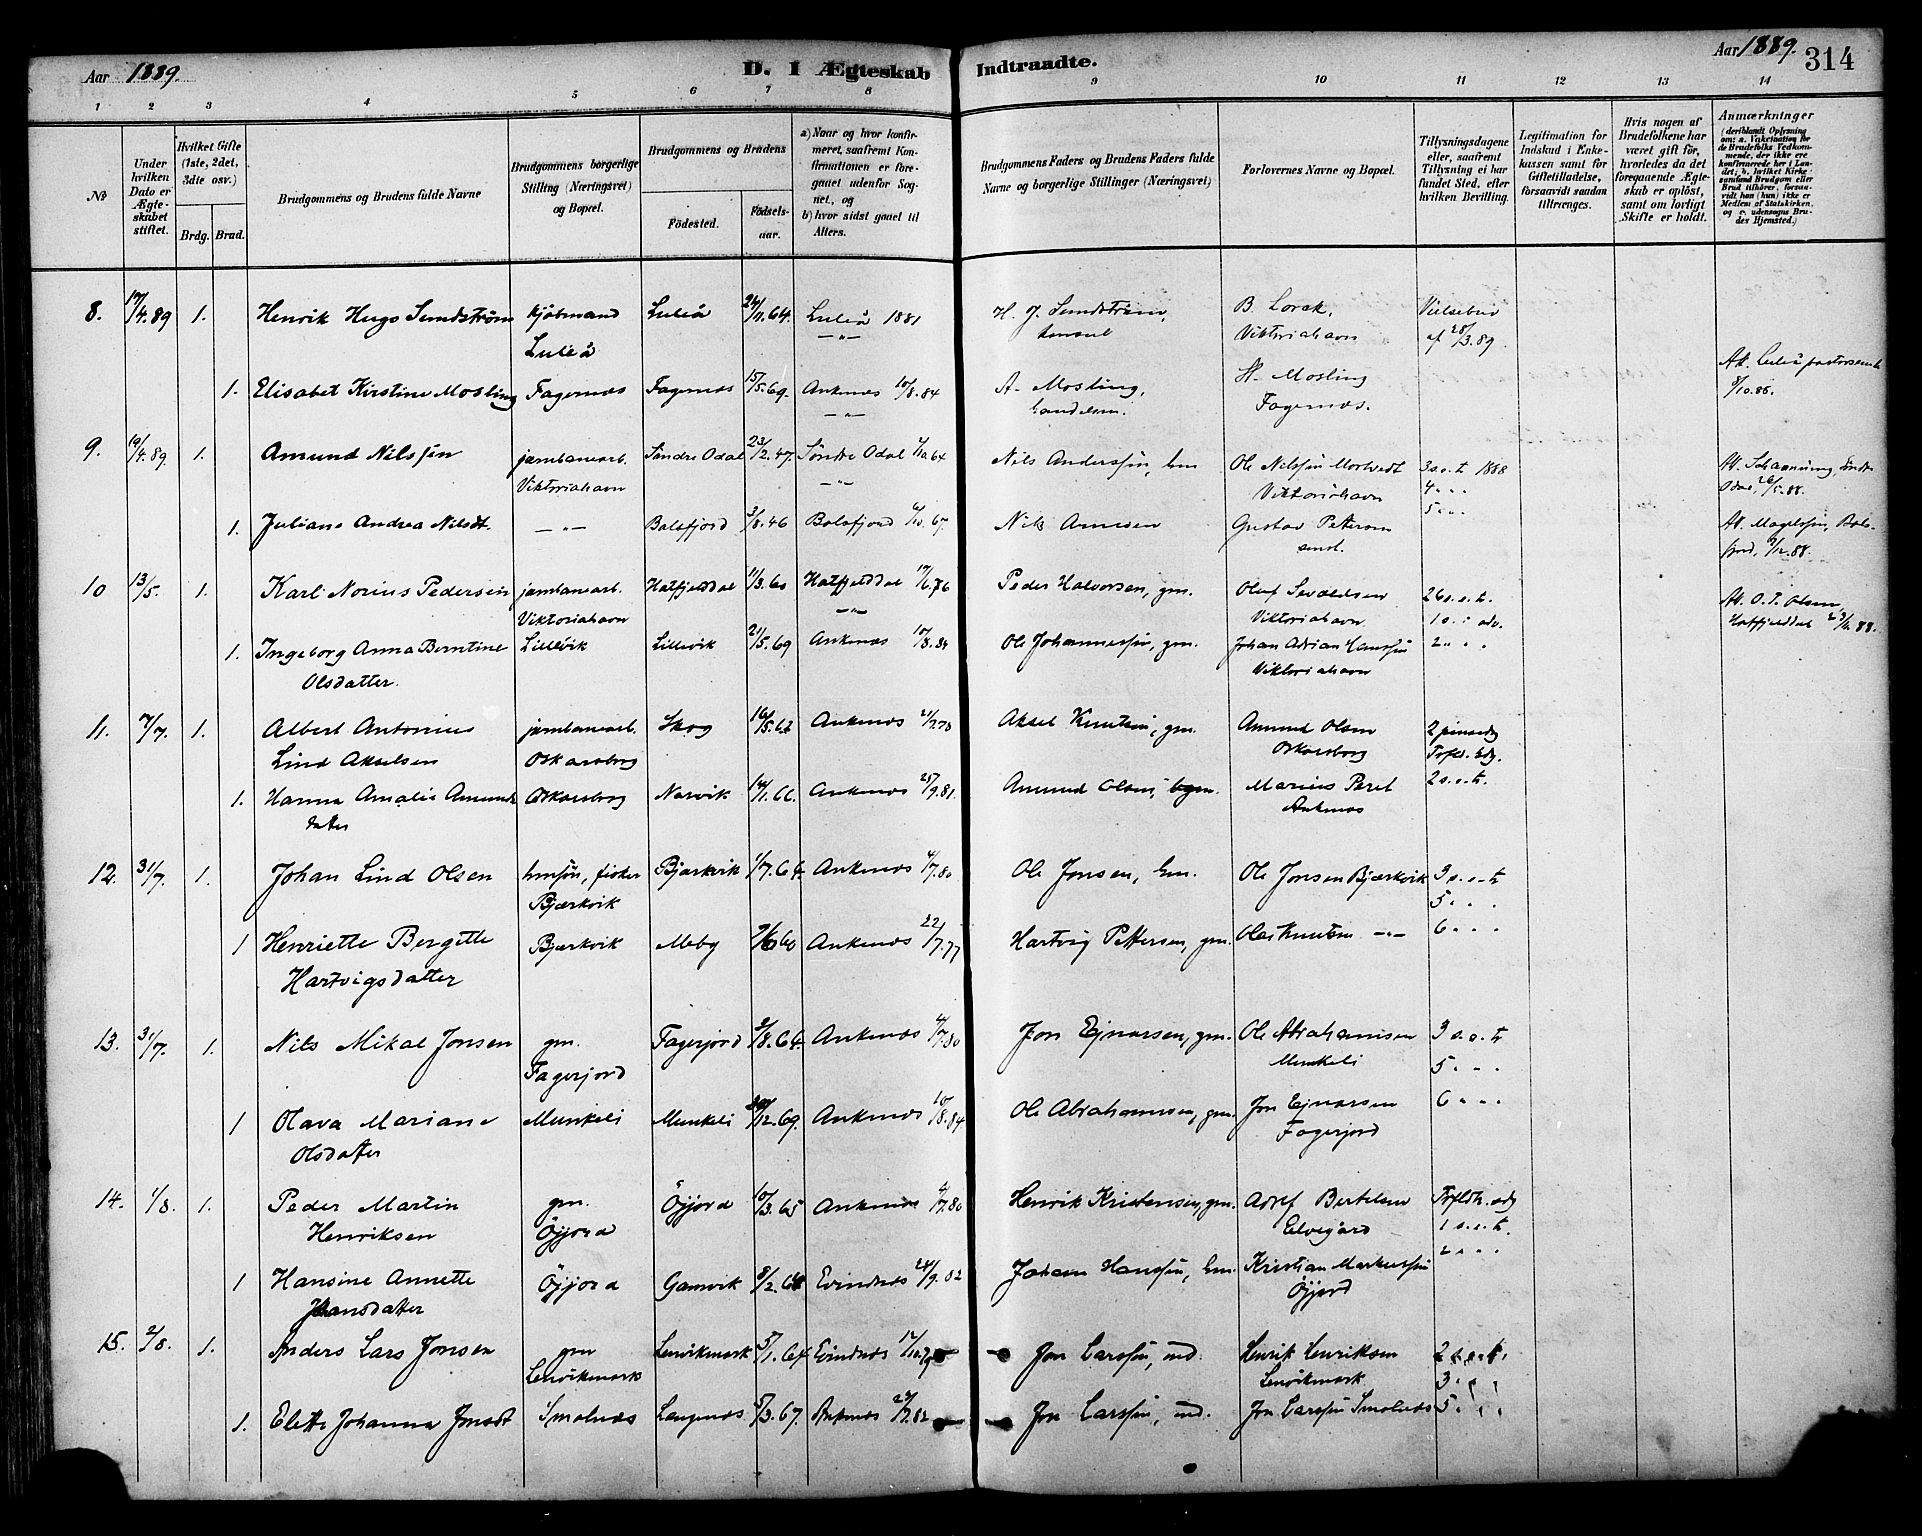 Aar 1889.
D. I Ægteskab Indtraadte.
Aar 1889. 314
1 2 3 4 5 6 7 8 9 10 11 12 13 14
No
Under hvilken Dato er Ægteskabet stiftet.
Hvilket Gifte (1ste, 2det, 3die osv.)
Brdg. Brud.
Brudgommens og Brudens fulde Navne
Brudgommens borgerlige Stilling (Næringsvei) og Bopæl.
Brudgommens og Brudens
Fødested. Fødselsaar.
a) Naar og hvor konfirmeret, saafremt Konfirmationen er foregaaet udenfor Sognet, og
b) hvor sidst gaaet til Alters.
Brudgommens Faders og Brudens Faders fulde Navne og borgerlige Stillinger (Næringsvei)
Forlovernes Navne og Bopæl.
Tillysningsdagene eller, saafremt Tillysning ei har fundet Sted, efter hvilken Bevilling.
Legitimation for Indskud i Enkekassen samt for Giftetilladelse, forsaavidt saadan tiltrænges.
Hvis nogen af Brudefolkene har været gift før, hvorledes da det foregaaende Ægteskab er opløst, samt om lovligt Skifte er holdt.
Anmærkninger (deriblandt Oplysning om: a. Vakcination for de Brudefolks Vedkommende, der ikke ere konfirmerede her i Landet; b. hvilket Kirkesamfund Brudgom eller Brud tilhører, forsaavidt han (hun) ikke er Medlem af Statskirken, og c. udensogns Brudes Hjemsted.)
8. 17/4.89 1. Henrik Hugo Sundström kjøbmand Luleå 24/11.64. Luleå 1881 H. J. Sundström, B. Lorck, Vielsebrev
Luleå —"— konsul Viktoriahavn af 28/3.89.
1. Elisabet Kirstine Mosling Fagernæs Fagernæs 15/5.69. Ankenæs 10/8.84 A. Mosling, H. Mosling At. Luleå pastorsemb.
—"— handelsm. Fagernæs. 9/10.88.
9. 19/4.89. 1. Amund Nilssøn jærnbanearb. Søndre Odal 23/2.47. Søndre Odal 2/10 64 Nils Anderssøn, hm Ole Nilssøn Mortvedt 3 s.e.t. 1888 At. Schanning, Søndre
Viktoriahavn —"— Viktoriahavn 4 " " Odal, 26/5.88.
1. Juliane Andrea Nilsdt. —"— Balsfjord 3/8.46 Balsfjord 6/10.67. Nils Arnesen Gustav Petterson 5 " " At. Magelssøn, Bals-
smst. fjord, 9/12.88.
10 13/5. 1. Karl Norius Pedersen jærnbanearb. Hatfjelddal 11/3.60 Hatfjelddal 17/6.76 Peder Halvorsen, gm. Oluf Sivaldsen 26 s.e.t. At. O. T. Olsen,
Viktoriahavn —"— Viktoriahavn. 1 s. i adv. Hatfjelddal 23/4.88.
1. Ingeborg Anna Berntine Lillevik Lillevik 21/5.69 Ankenæs 10/8.84 Ole Johannessøn, gm. Johan Adrian Hanssøn 2 " "
Olsdatter. Viktoriahavn
11. 7/7. 1. Albert Antonius jærnbanearb. Skog 16/5.62 Ankenæs 21/7.78 Aksel Knutsøn, gm. Amund Olsen 2 pinsedg
Lind Akselsen Oskarsborg Oskarsborg Trefol. sdg.
1. Hanna Amalie Amunds Oskarsborg Narvik 14/1.66. Ankenæs 25/9.81. Amund Olsen, gm. Marius Paret 2 s.e.tr.
datter Ankenæs
12. 31/7. 1. Johan Lind Olsen hmsøn, fisker Bjærkvik 1/7.64. Ankenæs 4/7.80 Ole Jonsen, hm. Ole Jonsen Bjærkvik 3 s.e.tr
Bjærkvik 5 " "
1 Henriette Bergitte Bjærkvik Meby 7/6 60 Ankenæs 22/7.77 Hartvig Pettersen, gm. Ole Knutsen —"— 6 " "
Hartvigsdatter
13. 31/7. 1. Nils Mikal Jonsen gm. Fagerjord 2/8.64. Ankenæs 4/7.80 Jon Ejnarsen, gm. Ole Abrahamsen 3 s.e.tr
Fagerjord Munkeli 5 " "
1 Olava Mariane Munkeli Munkeli 20/12.69. Ankenæs 10/8.84 Ole Abrahamssen, gm. Jon Ejnarsen 6 " "
Olsdatter Fagerjord
14. 1/8. 1. Peder Martin gm. Öjjord 10/3.65 Ankenæs 4/7.80 Henrik Kristensen, gm. Adolf Bertelsen Trefldh. sdg
Henriksen Öjjord Elvegård 1 s.e.tr.
1 Hansine Annette Öjjord Gamvik 8/2.68 Evindnæs 24/9.82 Johan Hanssøn, hm. Kristian Markussøn 2 " "
Johansdatter Öjjord
15. 2/8. 1. Anders Lars Jonsen gm Lenvikmark 5/1.64 Evindnæs 12/10.79 Jon Larssøn, ind. Henrik Henriksen 2 s.e.tr.
Lenvikmark Lenvikmark 3 " "
1. Elette Johanna Jonsdt Smalnæs Langenæs. 5/3.67. Ankenæs 23/7.82 Jon Larssøn, ind. Jon Larssøn Smalnæs 5 " "